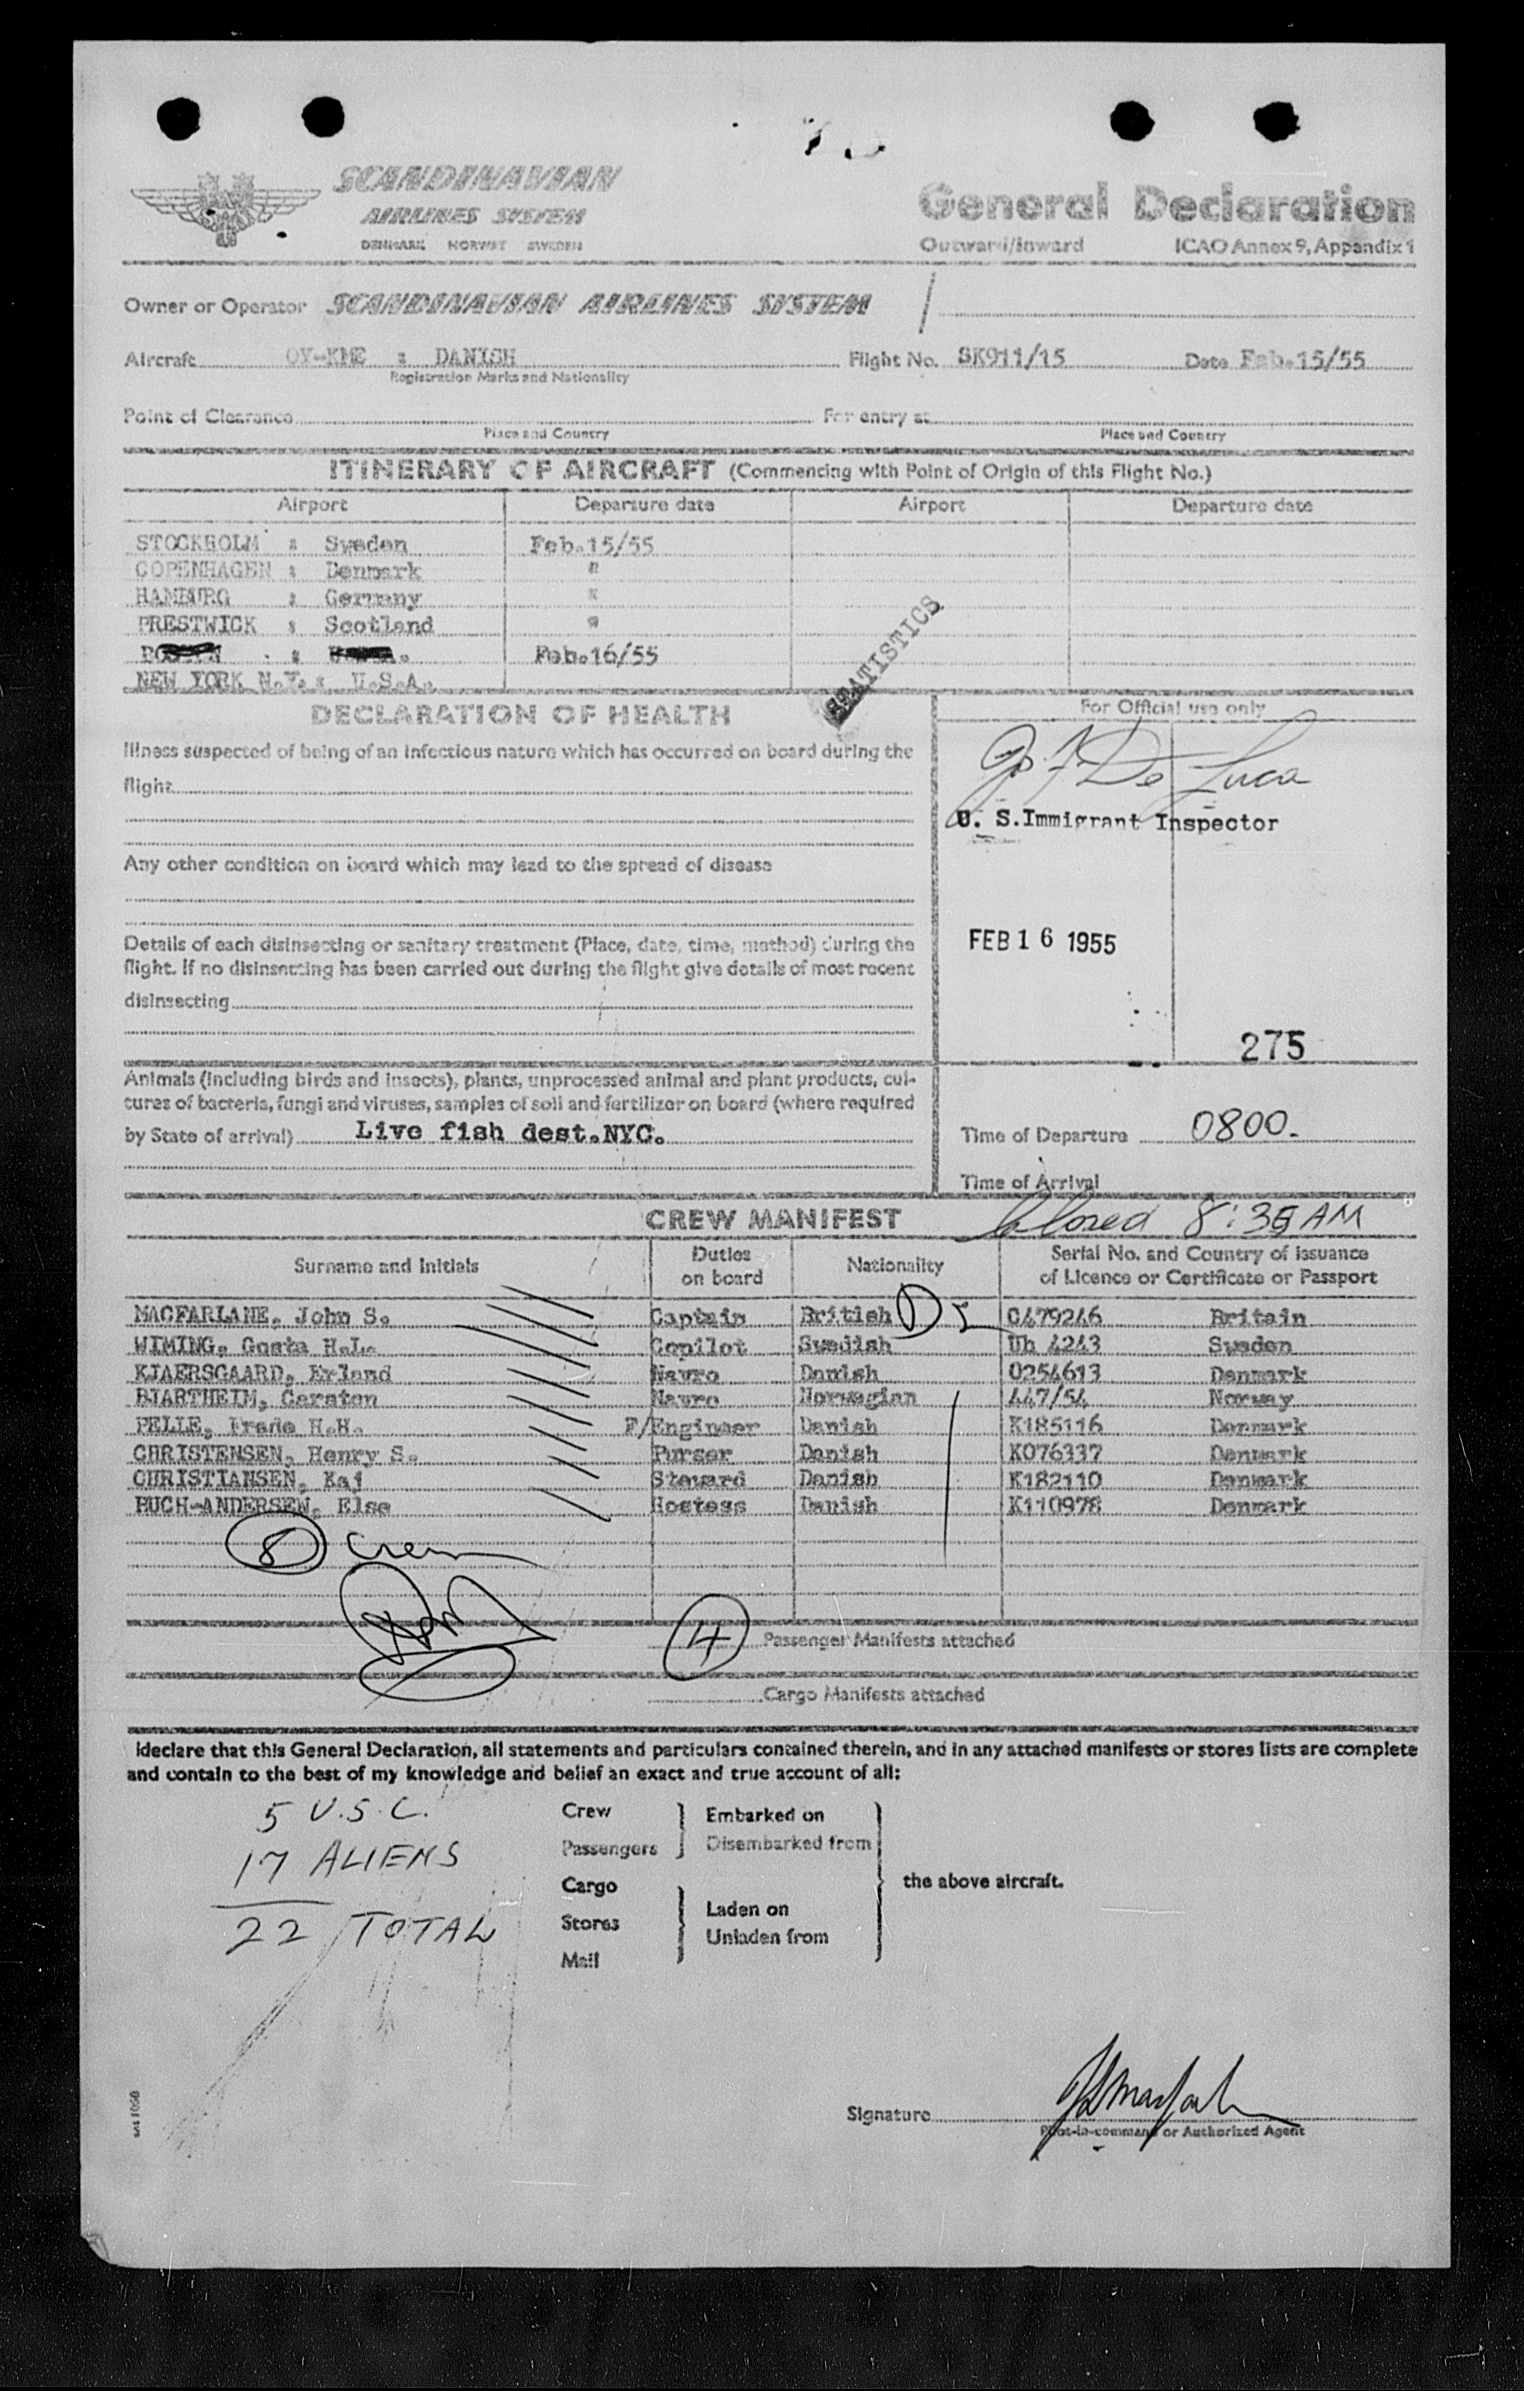 SCANDINAVIAN
AIRLINES SYSTEM
DENMARK NORWAY SWEDEN
General Declaration
Outward/Inward ICAO Annex 9, Appendix 1
Owner or Operator SCANDINAVIAN AIRLINES SYSTEM
Aircraft OY-KME : DANISH Flight No. SK911/15 Date Feb.15/55
Registration Marks and Nationality
Point of Clearance For entry at
Place and Country Place and Country
ITINERARY OF AIRCRAFT (Commencing with Point of Origin of this Flight No.)
Airport Departure date Airport Departure date
STOCKHOLM : Sweden Feb.15/55
COPENHAGEN : Denmark "
HAMBURG : Germany "
PRESTWICK : Scotland "
: Feb.16/55
NEW YORK N.Y. : U.S.A.
STATISTICS
DECLARATION OF HEALTH
For Official use only
Illness suspected of being of an infectious nature which has occurred on board during the
flight
J. F. De Luca
U. S.Immigrant Inspector
Any other condition on board which may lead to the spread of disease
Details of each disinsecting or sanitary treatment (Place, date, time, method) during the
flight. If no disinsecting has been carried out during the flight give details of most recent
disinsecting
FEB 16 1955
275
Animals (including birds and insects), plants, unprocessed animal and plant products, cul-
tures of bacteria, fungi and viruses, samples of soil and fertilizer on board (where required
by State of arrival) Live fish dest.NYC.
Time of Departure 0800.
Time of Arrival
CREW MANIFEST
Closed 8:35 AM
Surname and Initials Duties on board Nationality Serial No. and Country of issuance of Licence or Certificate or Passport
MACFARLANE, John S. Captain British C479246 Britain
WIMING, Gosta H.L. Copilot Swedish Uh 4243 Sweden
KJAERSGAARD, Erland Navro Danish 0254613 Denmark
BJARTHEIM, Carsten Navro Norwegian 447/54 Norway
PELLE, Frede H.H. F/Engineer Danish K185116 Denmark
CHRISTENSEN, Henry S. Purser Danish K076337 Denmark
CHRISTIANSEN, Kaj Steward Danish K182110 Denmark
BUCH-ANDERSEN, Else Hostess Danish K110978 Denmark
8 Crew
4 Passenger Manifests attached
Cargo Manifests attached
I declare that this General Declaration, all statements and particulars contained therein, and in any attached manifests or stores lists are complete
and contain to the best of my knowledge and belief an exact and true account of all:
5 U.S.C.
17 ALIENS
22 TOTAL
Crew
Passengers
Cargo
Stores
Mail
Embarked on
Disembarked from
Laden on
Unladen from
the above aircraft.
Signature
Pilot-in-command or Authorized Agent